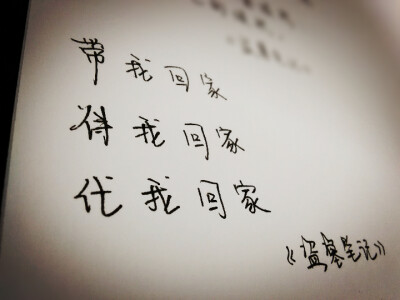 带我回家
待我回家
代我回家
《盗墓笔记》